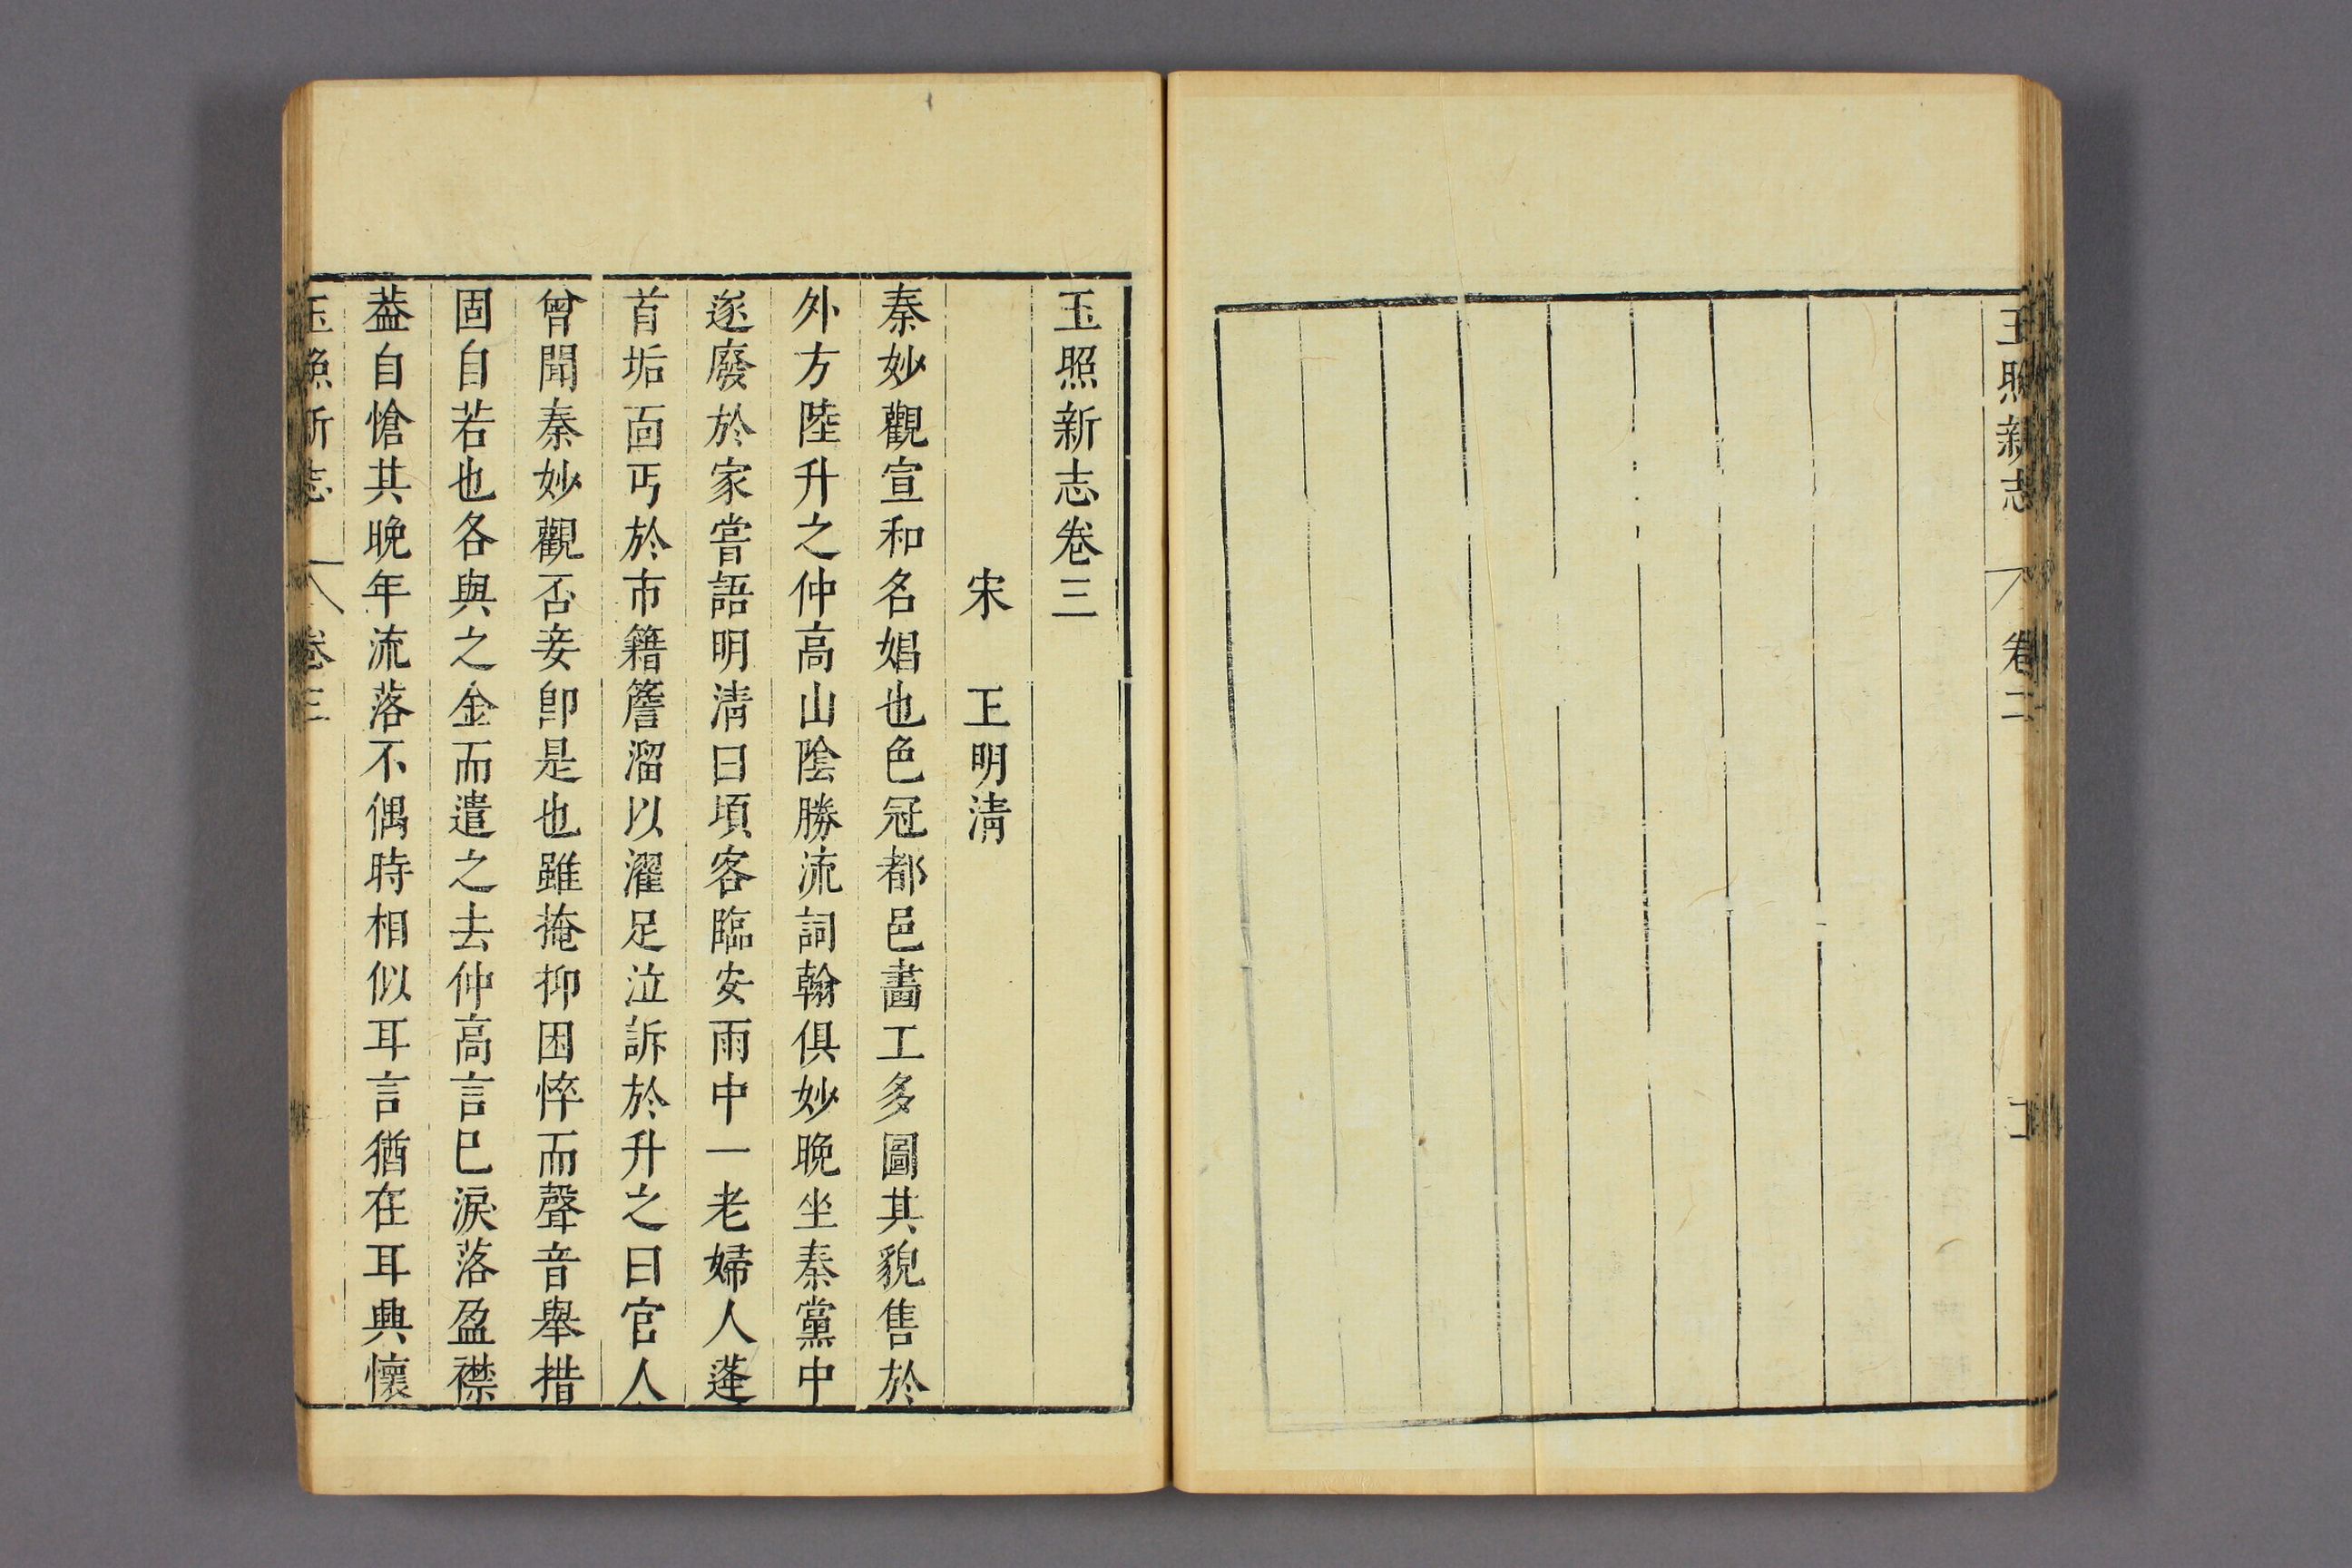 玉照新志
卷二
玉照新志卷三
宋　王明清
秦妙觀宣和名娼也色冠都邑畵工多圖其貌售於
外方陸升之仲高山陰勝流詞翰俱妙晚坐秦黨中
遂廢於家嘗語明清曰頃客臨安雨中一老婦人蓬
首垢面丐於市籍簷溜以濯足泣訴於升之曰官人
曾聞秦妙觀否妾卽是也雖掩抑困悴而聲音舉措
固自若也各與之金而遣之去仲高言已淚落盈襟
葢自愴其晚年流落不偶時相似耳言猶在耳興懷
玉照新志
卷三